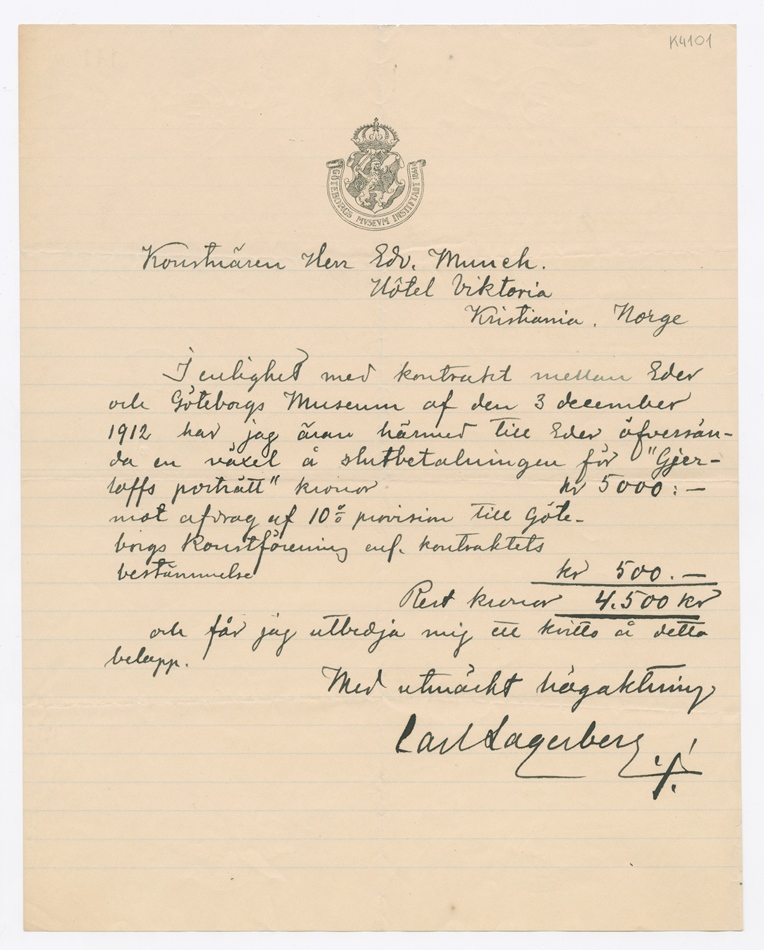 K4101
GÖTEBORGS MVSEVM INSTIFTADT 1861
Konstnären Herr Edv. Munch.
Hôtel Viktoria
Kristiania. Norge
I enlighet med kontrakt mellan Eder
och Göteborgs Museum af den 3 december
1912 har jag äran härmed till Eder öfversän-
da en växel å slutbetalningen för "Gjer-
löffs porträtt" kronor kr 5000:-
mot afdrag af 10% provision till Göte-
borgs Konstförening enl. kontraktets
bestämmelse kr 500.-
Rest kronor 4.500 kr
och får jag utbedja mig ett kvitto å detta
belopp.
Med utmärkt högaktning
Carl Lagerberg